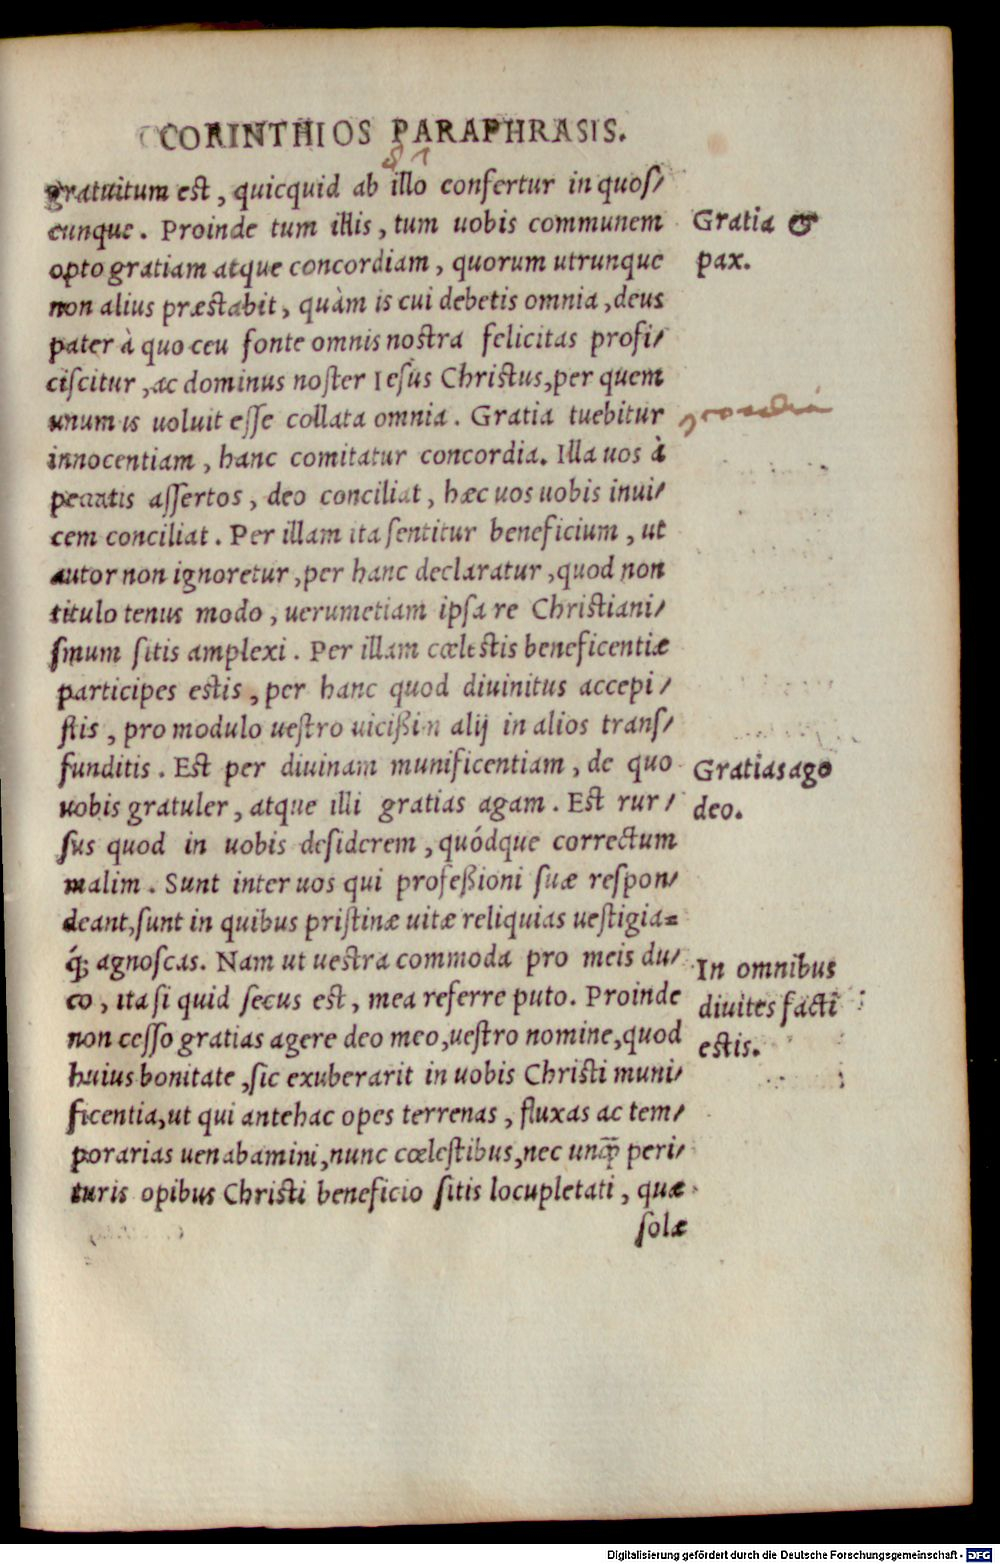 CORINTHIOS PARAPHRASIS.
gratuitum est, quicquid ab illo confertur in quos/
cunque. Proinde tum illis, tum uobis communem
opto gratiam atque concordiam, quorum utrunque
non alius præstabit, quàm is cui debetis omnia, deus
pater à quo ceu fonte omnis nostra felicitas profi/
ciscitur, ac dominus noster Iesus Christus, per quem
unum is uoluit esse collata omnia. Gratia tuebitur
innocentiam, hanc comitatur concordia. Illa uos à
peccatis assertos, deo conciliat, hæc uos uobis inui/
cem conciliat. Per illam ita sentitur beneficium, ut
autor non ignoretur, per hanc declaratur, quod non
titulo tenus modo, uerumetiam ipsa re Christiani/
smum sitis amplexi. Per illam cœlestis beneficentiæ
participes estis, per hanc quod diuinitus accepi/
stis, pro modulo uestro uicißim alij in alios trans/
funditis. Est per diuinam munificentiam, de quo
uobis gratuler, atque illi gratias agam. Est rur/
sus quod in uobis desiderem, quódque correctum
malim. Sunt inter uos qui profeßioni suæ respon/
deant, sunt in quibus pristinæ uitæ reliquias uestigia=
q́; agnoscas. Nam ut uestra commoda pro meis du/
co, ita si quid secus est, mea referre puto. Proinde
non cesso gratias agere deo meo, uestro nomine, quod
huius bonitate, sic exuberarit in uobis Christi muni/
ficentia, ut qui antehac opes terrenas, fluxas ac tem/
porarias uenabamini, nunc cœlestibus, nec unq̃ peri/
turis opibus Christi beneficio sitis locupletati, quæ
solæ
Gratia &
pax.
Gratias ago
deo.
In omnibus
diuites facti
estis.
81
Digitalisierung gefördert durch die Deutsche Forschungsgemeinschaft - DFG